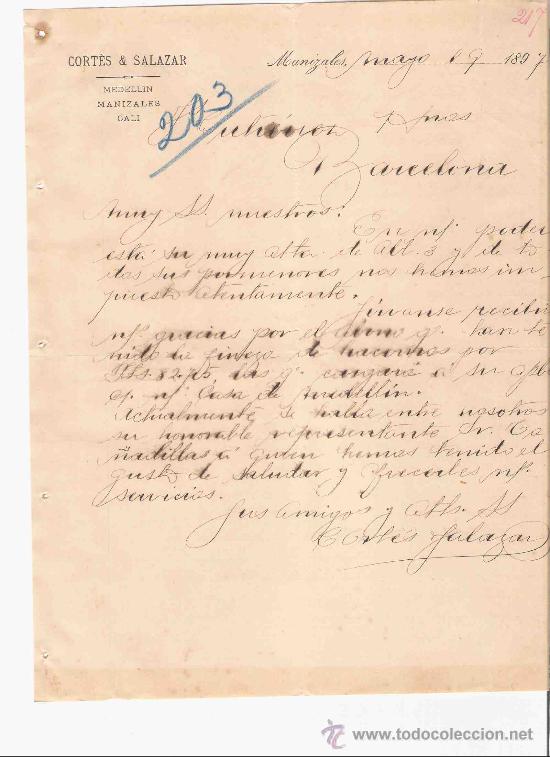 217
CORTÈS & SALAZAR
MEDELLIN
MANIZALES
CALI
Manizales, Mayo 9 1897
203
Hnos
Barcelona
Muy SS. nuestros:
En n/ poder
está su muy atta de Abl. 3 y de to
das sus pormenores nos hemos im
puesto atentamente.
Sirvanse recibir
n/ gracias por el abono q. han te
nido la fineza de hacernos por
82.75 las q. cargará á su
n/ Casa de Medellín.
Actualmente se halla entre nosotros
su honorable representante Sr. Ca
ñadillas á quien hemos tenido el
gusto de saludar y ofrecerles n/
servicios.
Sus amigos y atts. SS
Cortés Salazar
www.todocoleccion.net